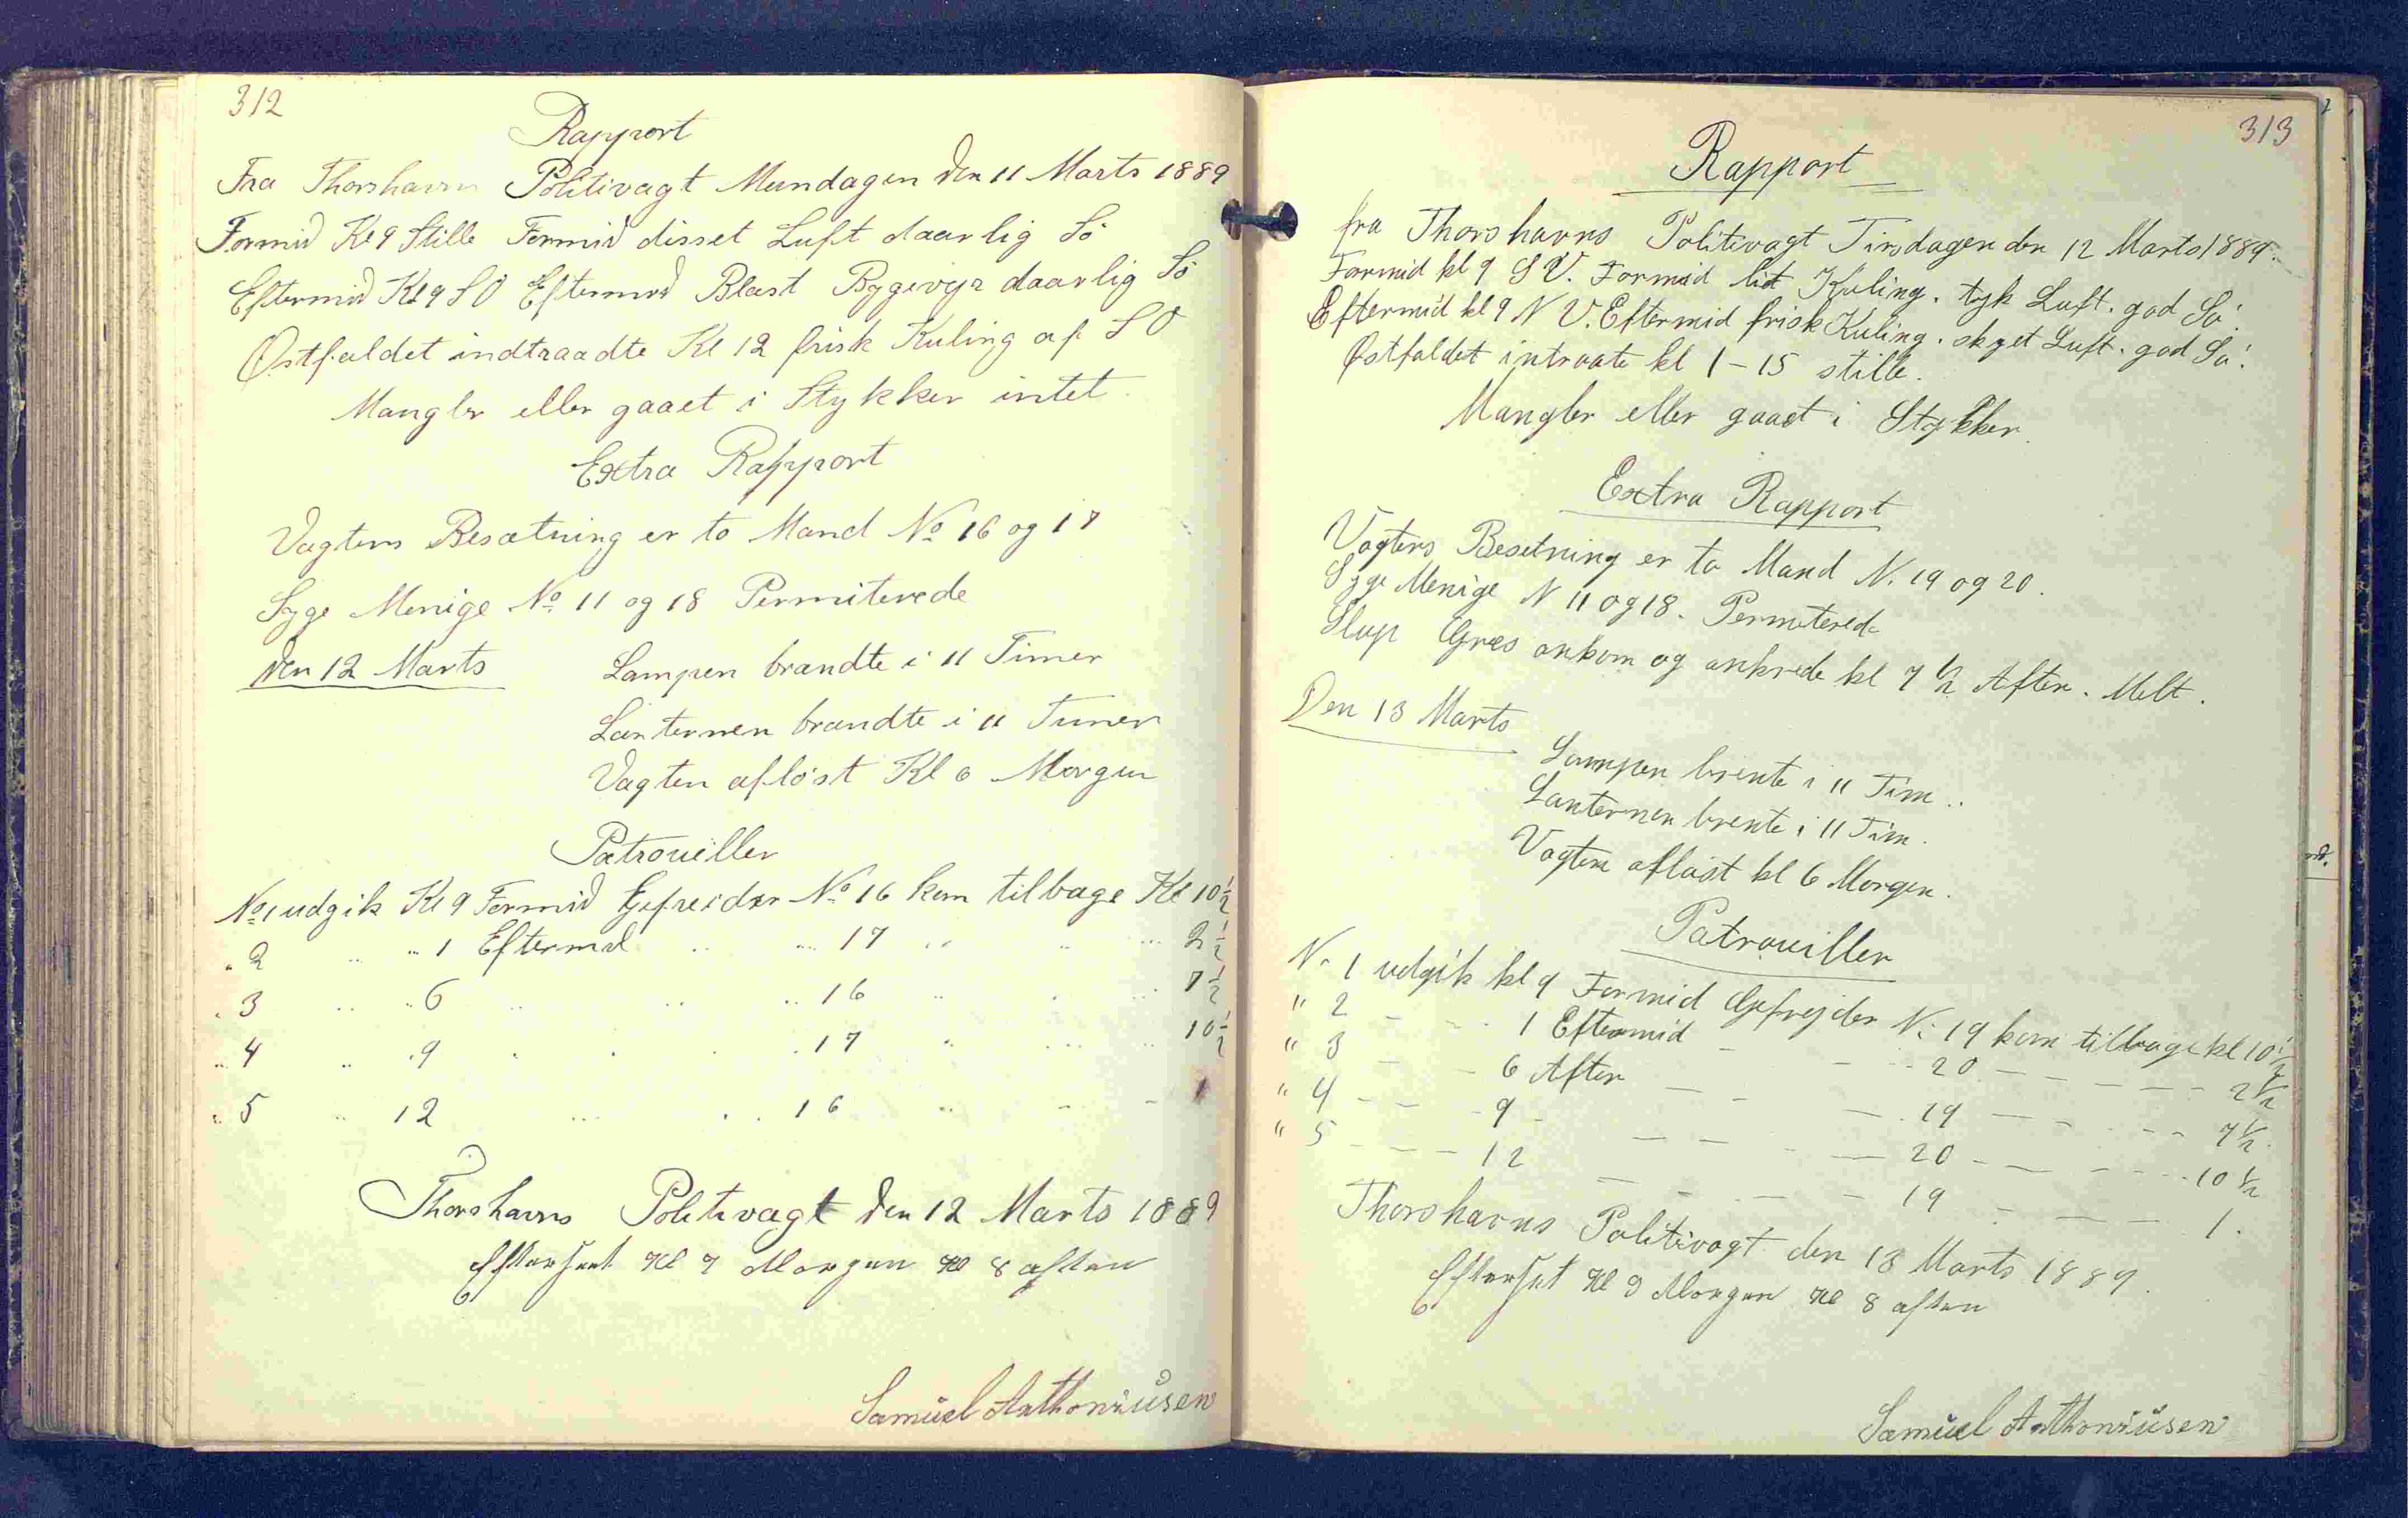 312
Rapport
Fra Thorshavns Politivagt Mandagen den 11 Marts 1889
Formid Kl 9 Stille Formid disset Luft daarlig Sö
Eftermid Kl 9 SO Eftermid Blæst Bygevejr daarlig Sö
Østfaldet indtraadte Kl 12 frisk Kuling af SO
Mangler eller gaaet i Stykker intet
Extra Rapport
Vagtens Besætning er to Mand No 16 og 17
Syge Menige No 11 og 18 Permiterede
den 12 Marts Lampen brandte i 11 Timer
Lanternen brandte i 11 Timer
Vagten aflöst Kl 6 Morgen
Patrouiller
No 1 udgik Kl 9 Formid Gefreider No 16 kom tilbage Kl 10 1/2
" 2 " " 1 Eftermid " " 17 " " " 2 1/2
" 3 " " 6 " " " 16 " " " 7 1/2
" 4 " " 9 " " " 17 " " " 10 1/2
" 5 " 12 " " " 16 " - - 1
Thorshavns Politivagt den 12 Marts 1889
Efterseet Kl 7 Morgen Kl 8 aften
Samuel Anthoniusen
313
Rapport
fra Thorshavns Politivagt Tirsdagen den 12 Marts 1889.
Formid kl 9 S V. Formid lidt Kuling. tyk Luft. god Sö.
Eftermid kl 9 N V. Eftermid frisk Kuling. skyet Luft. god Sö.
Østfaldet intraate kl 1-15 stille.
Mangler eller gaaet i Stykker.
Extra Rapport
Vagters Besetning er to Mand N. 19 og 20.
Syge Menige N 11 og 18. Permeterede
Slup Græs ankom og ankrede kl 7 1/2 Aften. Melt.
Den 13 Marts
Lampen brente i 11 Tim..
Lanternen brente i 11 Tim.
Vagten aflöst kl 6 Morgen.
Patrouiller
N. 1 udgik kl 9 Formid Gefrejder N. 19 kom tilbage kl 10 1/2
" 2 - - 1 Eftermid - - 20 - - - 2 1/2
" 3 - - 6 Aften - - 19 - - - 7 1/2.
" 4 - - 9 - - - 20 - - - 10 1/2
" 5 - - 12 - - - 19 - - - 1.
Thorshavns Politivagt den 13 Marts 1889.
Efterset Kl 9 Morgen Kl 8 aften
Samuel Anthoniusen